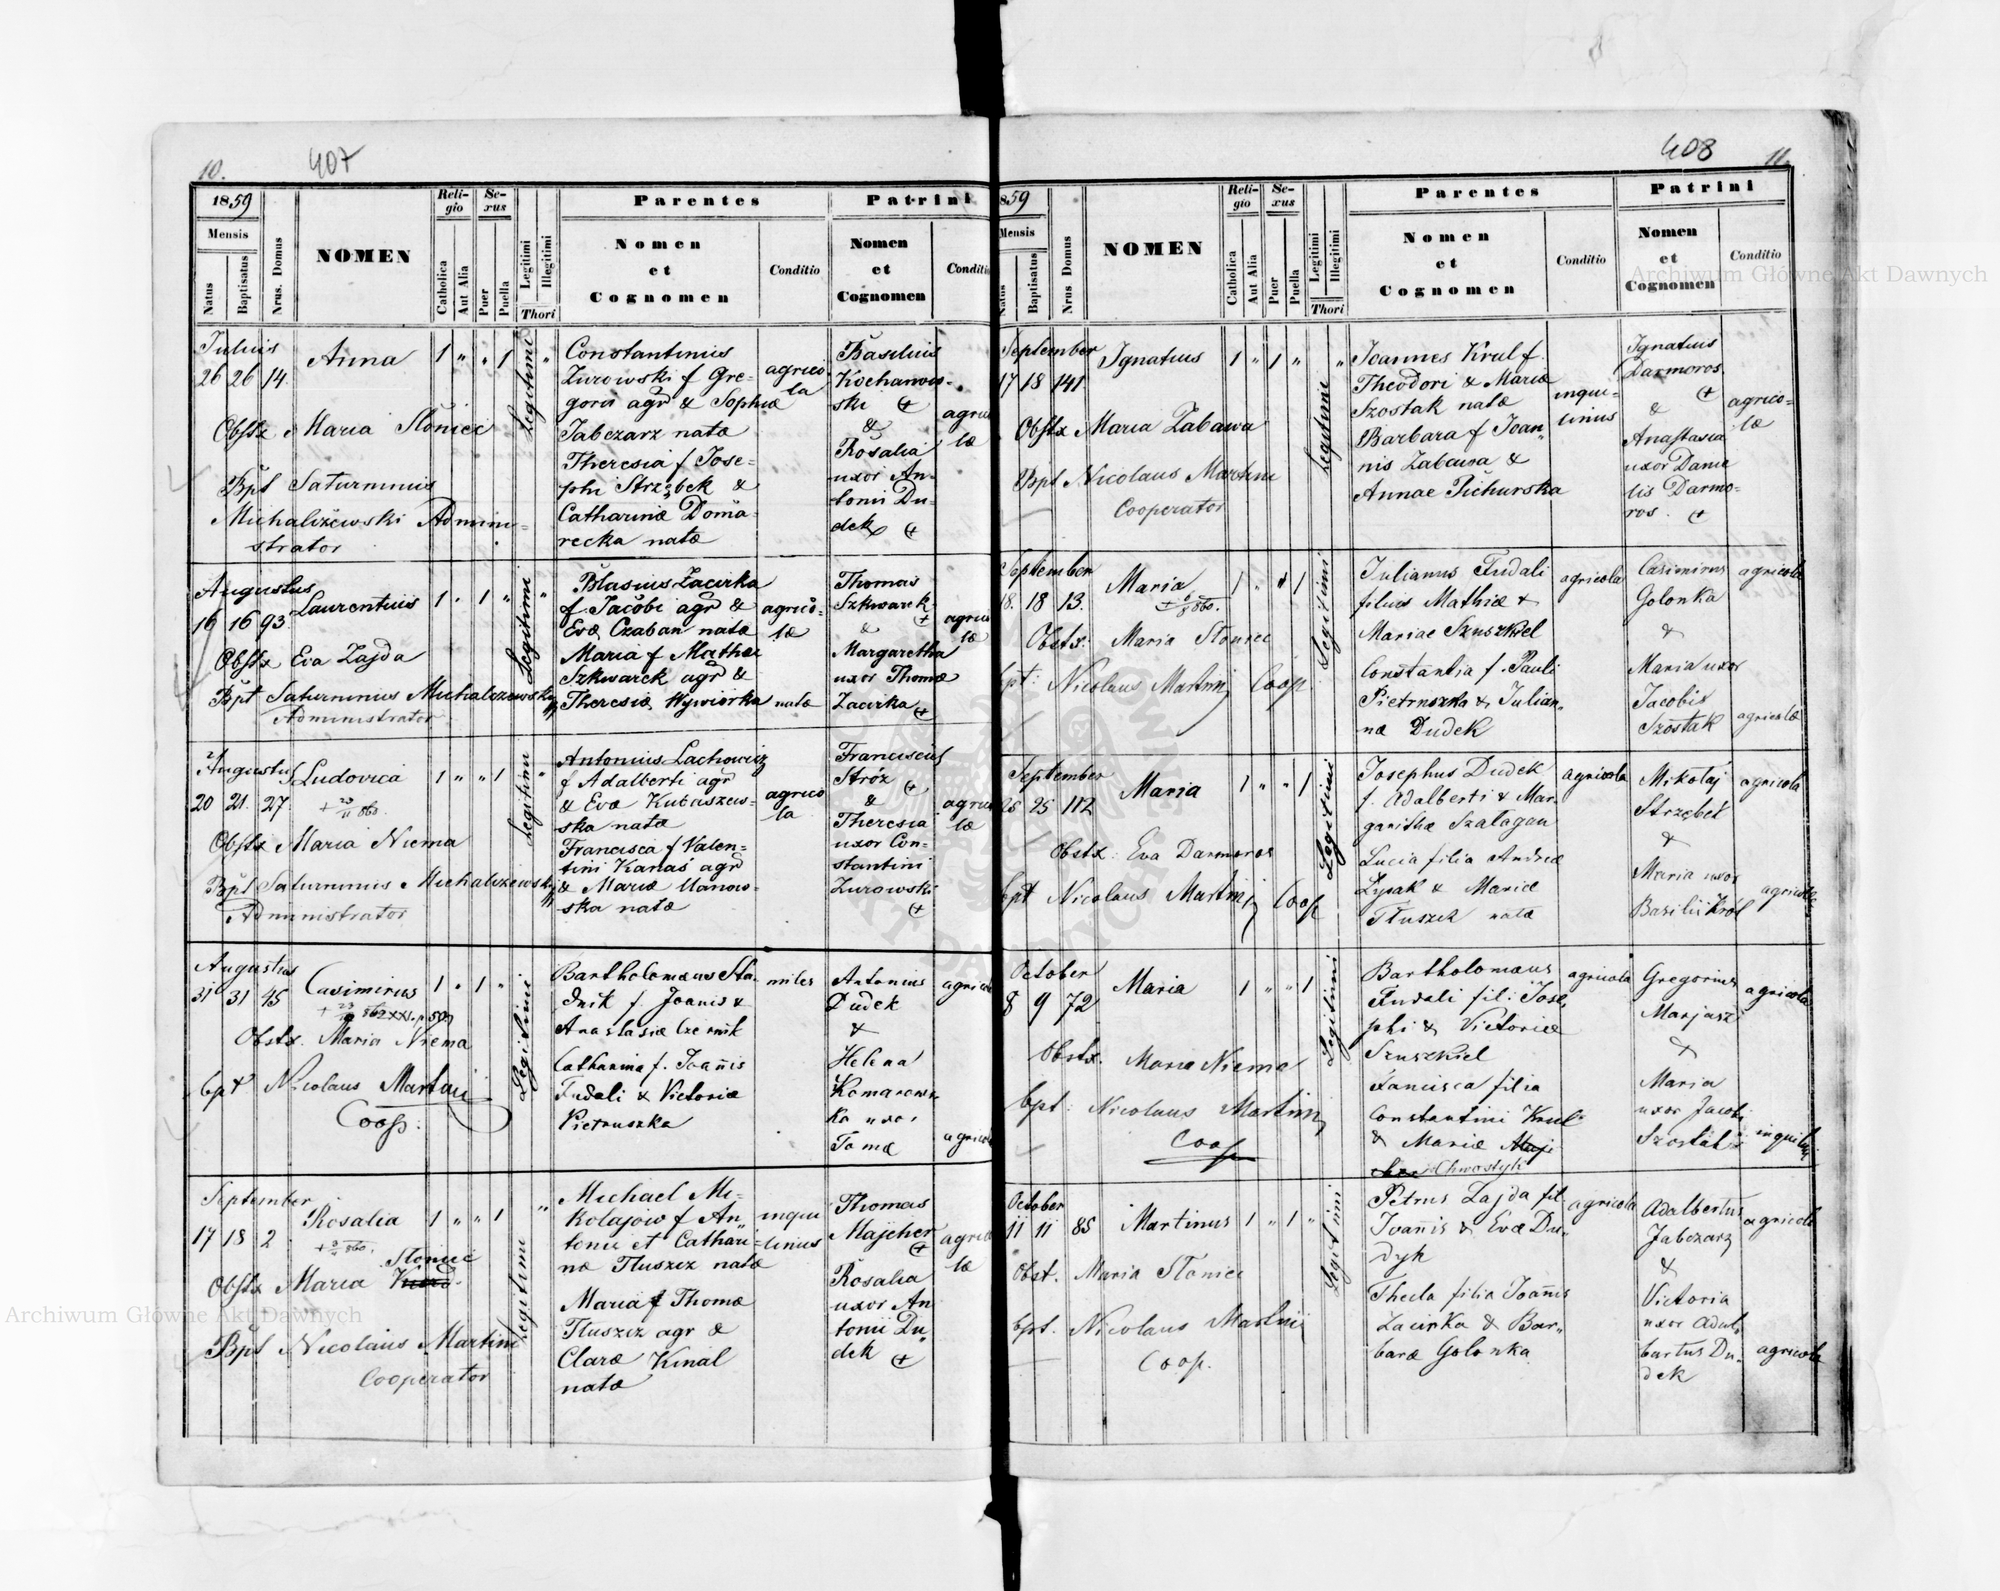 10.
407
1859
Mensis
Natus
Baptisatus
Nrus. Domus
NOMEN
Religio
Catholica
Aut Alia
Sexus
Puer
Puella
Legitimi
Illegitimi
Thori
Parentes
Nomen
et
Cognomen
Conditio
Patrini
Nomen
et
Cognomen
Conditio
Julius
26 26 14.
Anna
1 " " 1
Legitimi
"
Obstx Maria Słoniec
Bpt Saturninus
Michalczewski Admini-
strator
Constantinus
Zurowski f Gre-
gorii agr & Sophiæ
Jabczarz natæ
Theresia f Jose-
phi Strzębek &
Catharinæ Doma-
recka natæ
agrico
la
Basilius
Kochanow-
ski +
&
Rosalia
uxor An-
tonii Du-
dek +
agrico
læ
Augustus
16 16 93
Laurentius
1 " 1 "
Legitimi
"
Obstx Eva Zajda
Bpt Saturninus Michalczewski
Administrator
Blasius Zacirka
f. Jacobi agr &
Evæ Czaban natæ
Maria f Mathæ
Szkwarek agr &
Theresiæ Wywiórka natæ
agrico-
læ
Thomas
Szkwarek
+
&
Margaretha
uxor Thomæ
Zacirka +
agrico
læ
Augustus
20 21. 27.
Ludovica
+ 23/11 860.
1 " " 1
Legitimi
"
Obstx Maria Niema
Bpt Saturninus Michalczewski
Administrator
Antonius Lachowicz
f Adalberti agr
& Evæ Kubaszew-
ska natæ
Francisca f Valen-
tini Kanaś agr
& Mariæ Manow-
ska natæ
agrico
la
Franciscus
Stróż +
&
Theresia
uxor Con-
stantini
Zurowski
+
agrico
læ
Augustus
31 31 45
Casimirus
1 " 1 "
Legitimi
Obstx. Maria Niema
bpt Nicolaus Martini
Coop.
Bartholomæus Sta-
dnik f. Joanis &
Anastasiæ Czernik
Catharina f. Joannis
Fudali & Victoriæ
Pietruszka
miles
Antonius
Dudek
&
Helena
Komarows
ka uxor
Tomæ
agricola
agricola
September
17 18 2
Rosalia
1 " " 1
Legitimi
"
Słoniec
Obstx Maria
Bpt Nicolaus Martini
Cooperator
Michael Mi-
kolajów f An-
tonii et Cathari-
næ Tluszcz natæ
Maria f Thomæ
Tluszcz agr &
Claræ Kinal
natæ
inqui
linus
Thomas
Majcher
+
Rosalia
uxor An
tonii Du-
dek +
agrico
læ
408
11.
1859
Mensis
Natus
Baptisatus
Nrus Domus
NOMEN
Religio
Catholica
Aut Alia
Sexus
Puer
Puella
Legitimi
Illegitimi
Thori
Parentes
Nomen
et
Cognomen
Conditio
Patrini
Nomen
et
Cognomen
Conditio
September
17 18 141
Ignatius
1 " 1 "
Legitimi
"
Obstx Maria Zabawa
Bpt Nicolaus Martini
Cooperator
Joannes Krul f.
Theodori & Mariæ
Szostak natæ
Barbara f Joan-
nis Zabawa &
Annae Pichurska
inqui-
linus
Ignatius
Darmoros
+
&
Anastasia
uxor Danie
lis Darmo-
ros. +
agrico-
læ
September
18. 18 13.
Maria
1 " " 1
Legitimi
Obstx: Maria Słoniec
bpt: Nicolaus Martini Coop
Julianus Fudali
filius Mathiæ &
Mariae Szuszkiel
Constantia f. Pauli
Pietruszka & Julian-
næ Dudek
agricola
Casimirus
Golonka
&
Maria uxor
Jacobi
Szostak
agricola
agricolæ
September
25 25 112
Maria
1 " " 1
Legitimi
Obstx: Eva Darmoros
bpt Nicolaus Martini Coop
Josephus Dudek
f. Adalberti & Mar-
garithæ Szalagan
Lucia filia Andreæ
Łysak & Mariæ
Tłuszcz natæ
agricola
Mikołaj
Strzębek
&
Maria uxor
Basilii Król
agricola
agricola
October
8 9 72
Maria
1 " " 1
Legitimi
Obstx. Maria Niema
bpt: Nicolaus Martini
Coop
Bartholomæus
Fudali fil: Jose-
phi & Victoriæ
Szuszkiel
Fancisca filia
Constantini Krul
& Mariæ
Chwostyk
agricola
Gregorius
Marjasz
&
Maria
uxor Jacobi
Szostak
agricola
inquilini
October
11 11 85
Martinus
1 " 1 "
Legitimi
Obst. Maria Słoniec
bpt. Nicolaus Martini
Coop.
Petrus Zajda fil.
Joannis & Evæ Du-
dyk
Thecla filia Joannis
Zacirka & Bar-
baræ Golonka
agricola
Adalbertus
Jabczarz
&
Victoria
uxor Adal-
bertus Du-
dek
agricola
agricola
Archiwum Główne Akt Dawnych
Archiwum Główne Akt Dawnych